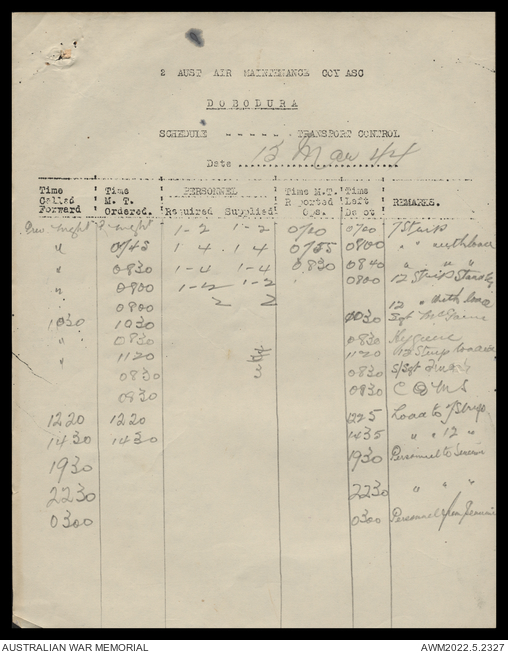 2 AUST AIR MAINTENANCE COY ASC
DOBODURA
SCHEDULE - - - - - - TRANSPORT CONTROL
Date 13 Mar 44
Time Called Forward Time M. T. Ordered. PERSONNEL Required Supplied Time M.T. Reported Ops. Time Left Depot REMARKS.
night night 1-2 1-2 0700 0700 7 Strip
" 0745 1-4 1-4 0755 0800 " " with load
" 0830 1-4 1-4 0830 0840 " " "
" 0800 1-2 1-2 0800 12 Strip Standby
0800 2 2 12 " with load
1030 1030 1030 Sgt
" 0830 0830 Hygiene
" 1120 1120 12 Strip
0830 0830 S/Sgt
0930 0830 C Q M S
1220 1220 1225 Load to 7 Strip
1430 1430 1435 " " 12 "
1930 1930 Personnel to
2230 2230 " " "
0300 0300 Personnel from
AUSTRALIAN WAR MEMORIAL AWM2022.5.2327